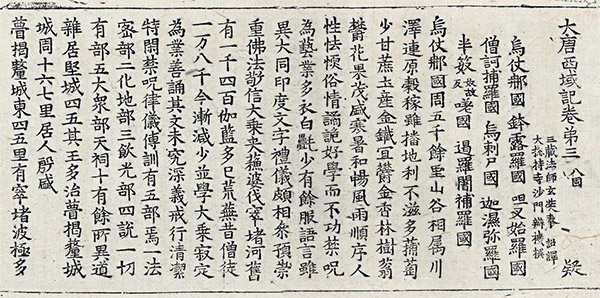 大唐西域記卷第三 八國 疑
三藏法師玄奘奉 詔譯
大揔持寺沙門辯機撰
烏仗那國 鉢露羅國 呾叉始羅國
僧訶補羅國 烏剌尸國 迦濕弥羅國
半笯奴故反嗟國 遏羅闍補羅國
烏仗那國周五千餘里山谷相属川
澤連原穀稼雖播地利不滋多蒲萄
少甘蔗土産金鐵宜欝金香林樹蓊
欝花果茂盛寒暑和暢風雨順序人
性怯愞俗情譎詭好學而不功禁呪
為藝業多衣白㲲少有餘服語言雖
異大同印度文字禮儀頗相參預崇
重佛法敬信大乗夾蘇婆伐窣堵河舊
有一千四百伽藍多已荒蕪昔僧徒
一万八千今漸減少並學大乗寂定
為業善誦其文未究深義戒行清潔
特閑禁呪律儀傳訓有五部焉一法
密部二化地部三飲光部四說一切
有部五大衆部天祠十有餘所異道
雜居堅城四五其王多治瞢揭釐城
城周十六七里居人殷盛
瞢揭釐城東四五里有窣堵波極多